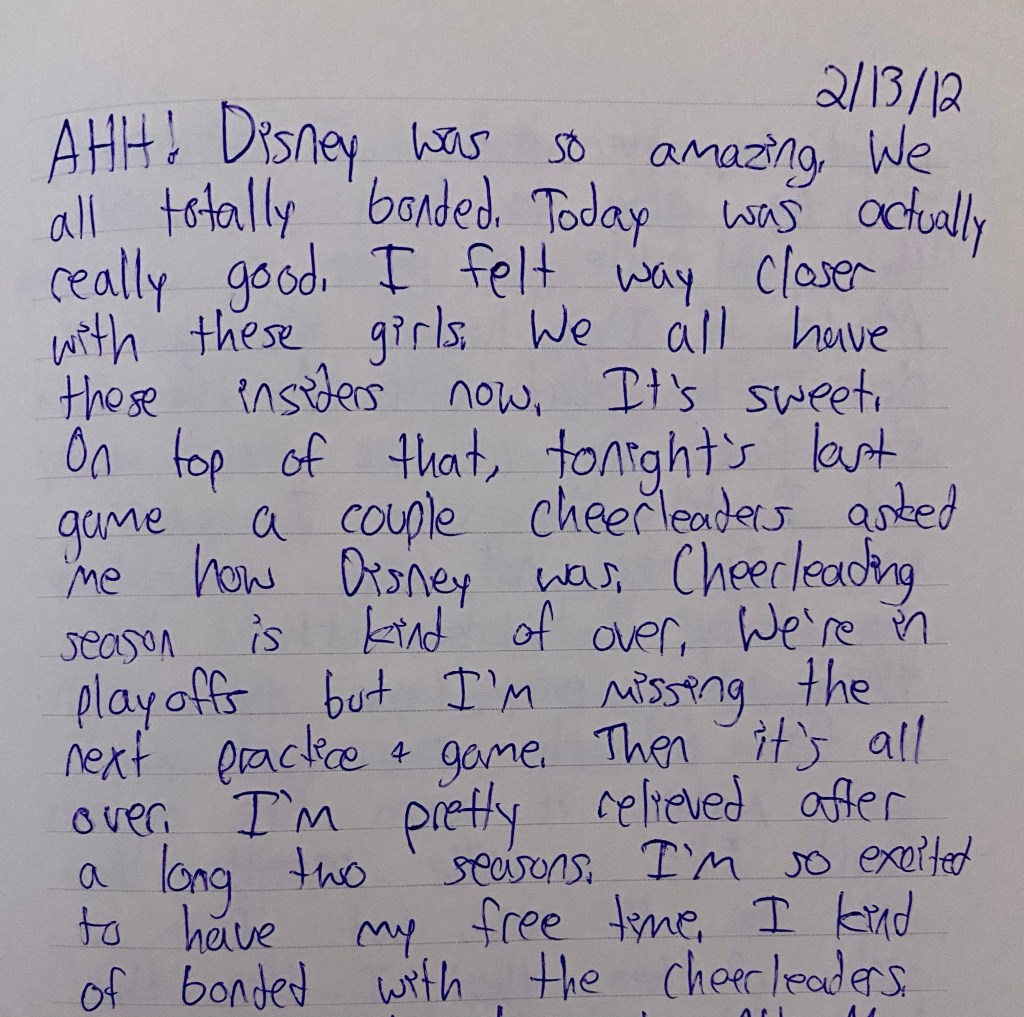 2/13/12
AHH! Disney was so amazing. We
all totally bonded. Today was actually
really good. I felt way closer
with these girls. We all have
these insiders now. It's sweet.
On top of that, tonight's last
game a couple cheerleaders asked
me how Disney was. Cheerleading
season is kind of over. We're in
playoffs but I'm missing the
next practice & game. Then it's all
over. I'm pretty relieved after
a long two seasons. I'm so excited
to have my free time. I kind
of bonded with the cheerleaders.